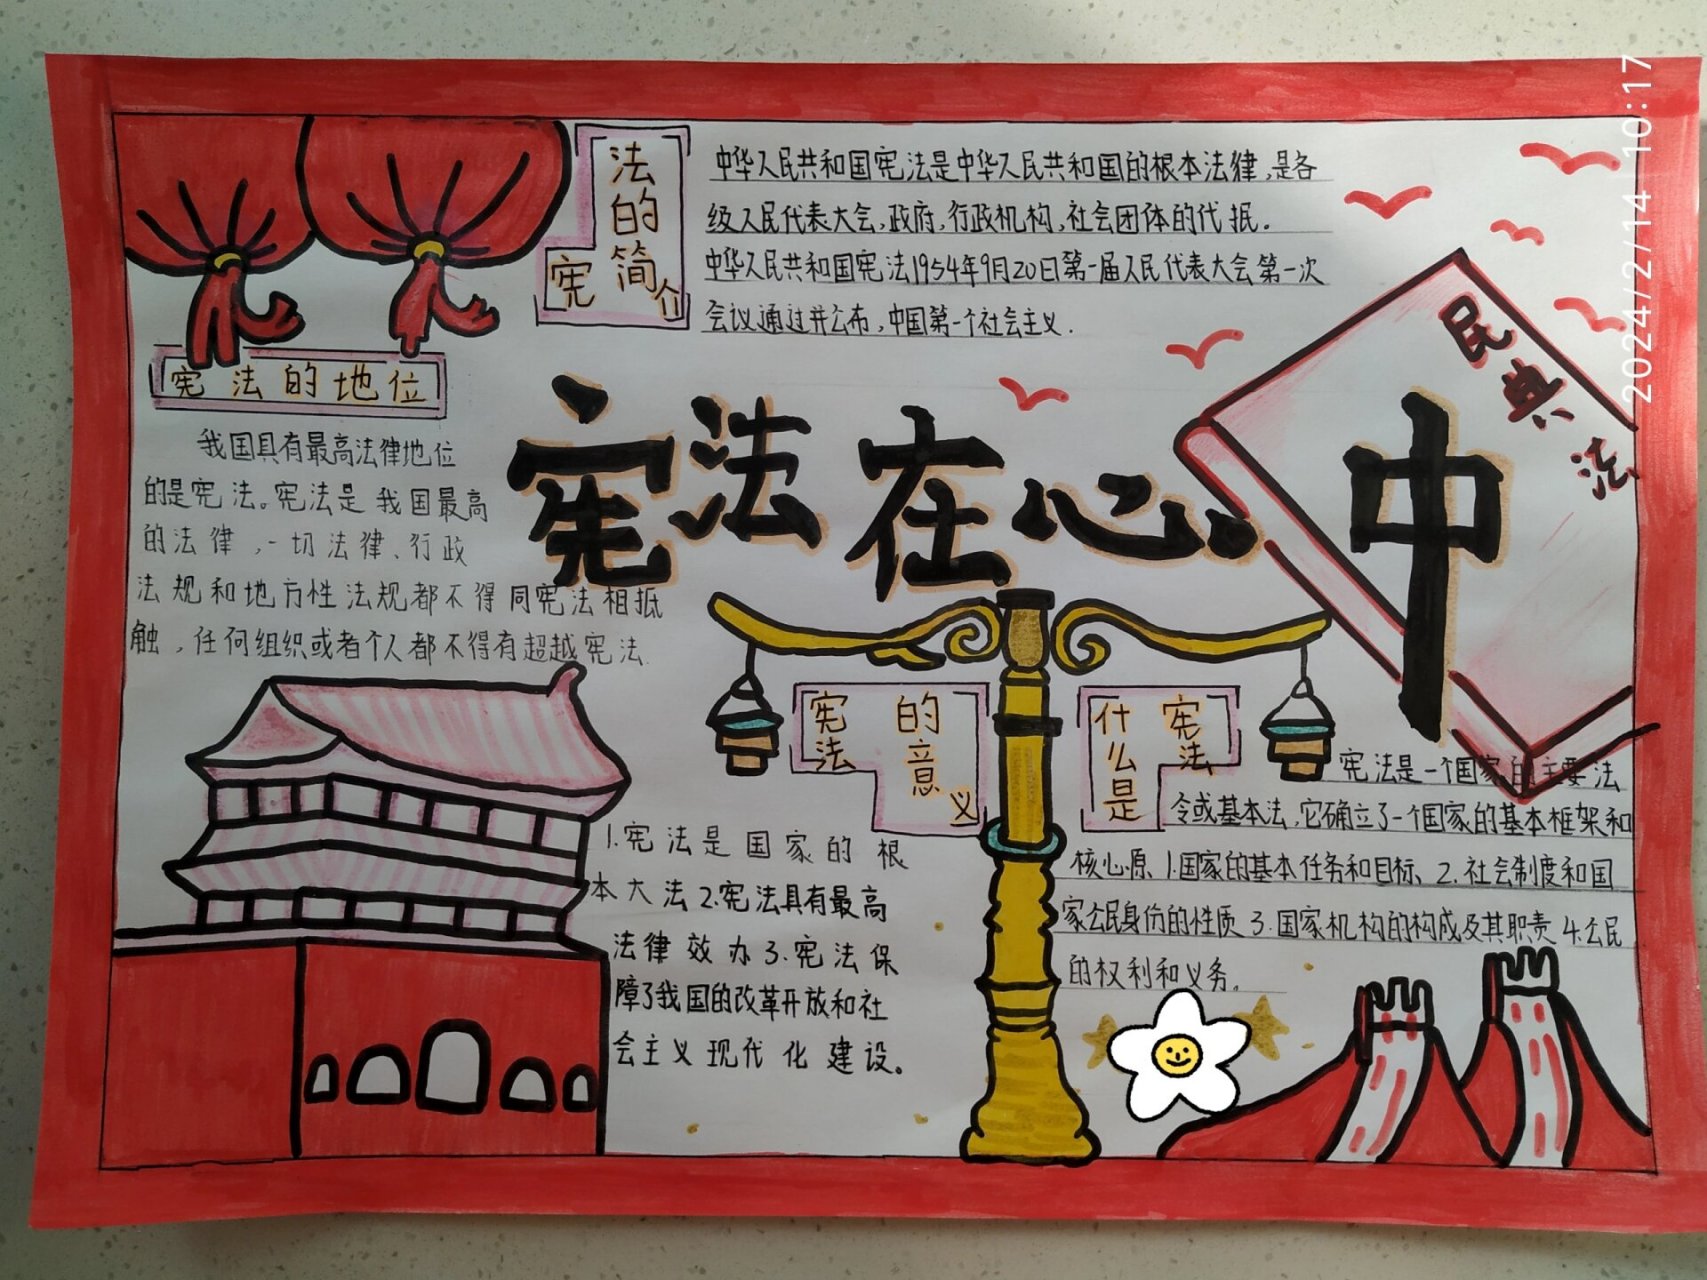 宪法的简介
中华人民共和国宪法是中华人民共和国的根本法律,是各
级人民代表大会,政府,行政机构,社会团体的代抿.
中华人民共和国宪法1954年9月20日第一届人民代表大会第一次
会议通过并公布,中国第一个社会主义.
宪法的地位
我国具有最高法律地位
的是宪法。宪法是我国最高
的法律,一切法律、行政
法规和地方性法规都不得同宪法相抵
触,任何组织或者个人都不得有超越宪法.
宪法在心中
民典法
宪法的意义
1.宪法是国家的根
本大法2.宪法具有最高
法律效办3.宪法保
障了我国的改革开放和社
会主义现代化建设。
什么是宪法
宪法是一个国家的主要法
令或基本法,它确立了一个国家的基本框架和
核心原、1.国家的基本任务和目标、2.社会制度和国
家公民身份的性质3.国家机构的构成及其职责4.公民
的权利和义务。
2024/2/14 10:17